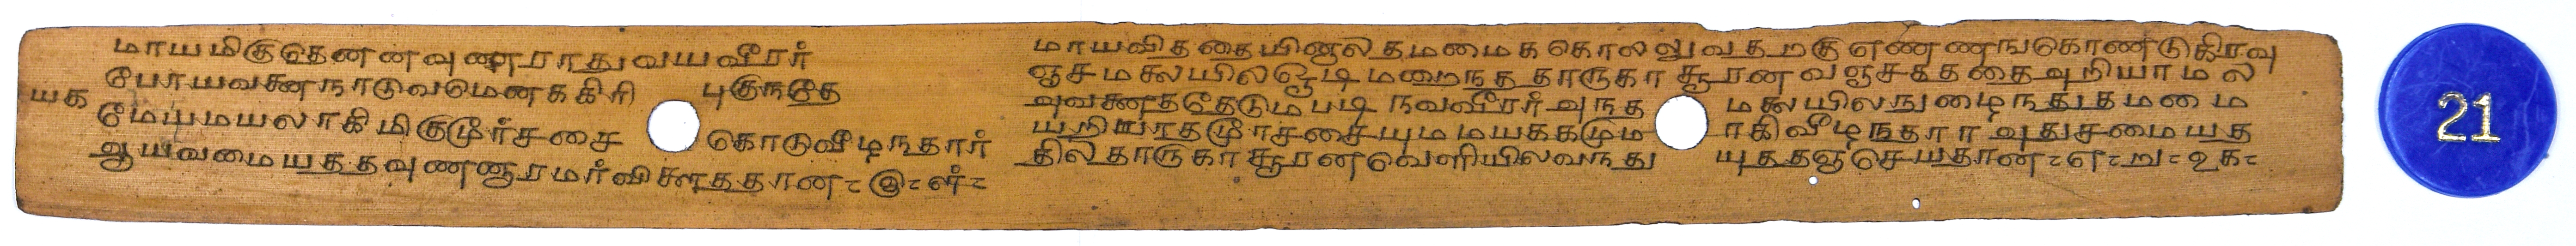 மாயமிகுதெனனவுணராதுவயவீரர்
போயவணைநாடுவமெனககிரி புகுநதே
யக
மேயமயலாகிமிகுமூர்சசை கொடுவீழநதார்
ஆயவமையததவுணணூரமர்விளைததான-இ-ள்-
மாயவிததையினாலதமமைககொலலுவதறகுஎணணஙகொண்டுகிரவு
ஞசமலையிலஓடிமறைநததாருகாசூரனவஞசகததைஅறியாமல
அவணைததேடுமபடிநவவீரர்அநத மலையிலநுழைநதுதமமை
யறியாதமூரசசையுமமயககமும ாகிவீழநதாரஅதுசமையத
திலதாருகாசூரனவெளியிலவநது யுததஞசெயதான-எ-று-உக-
21